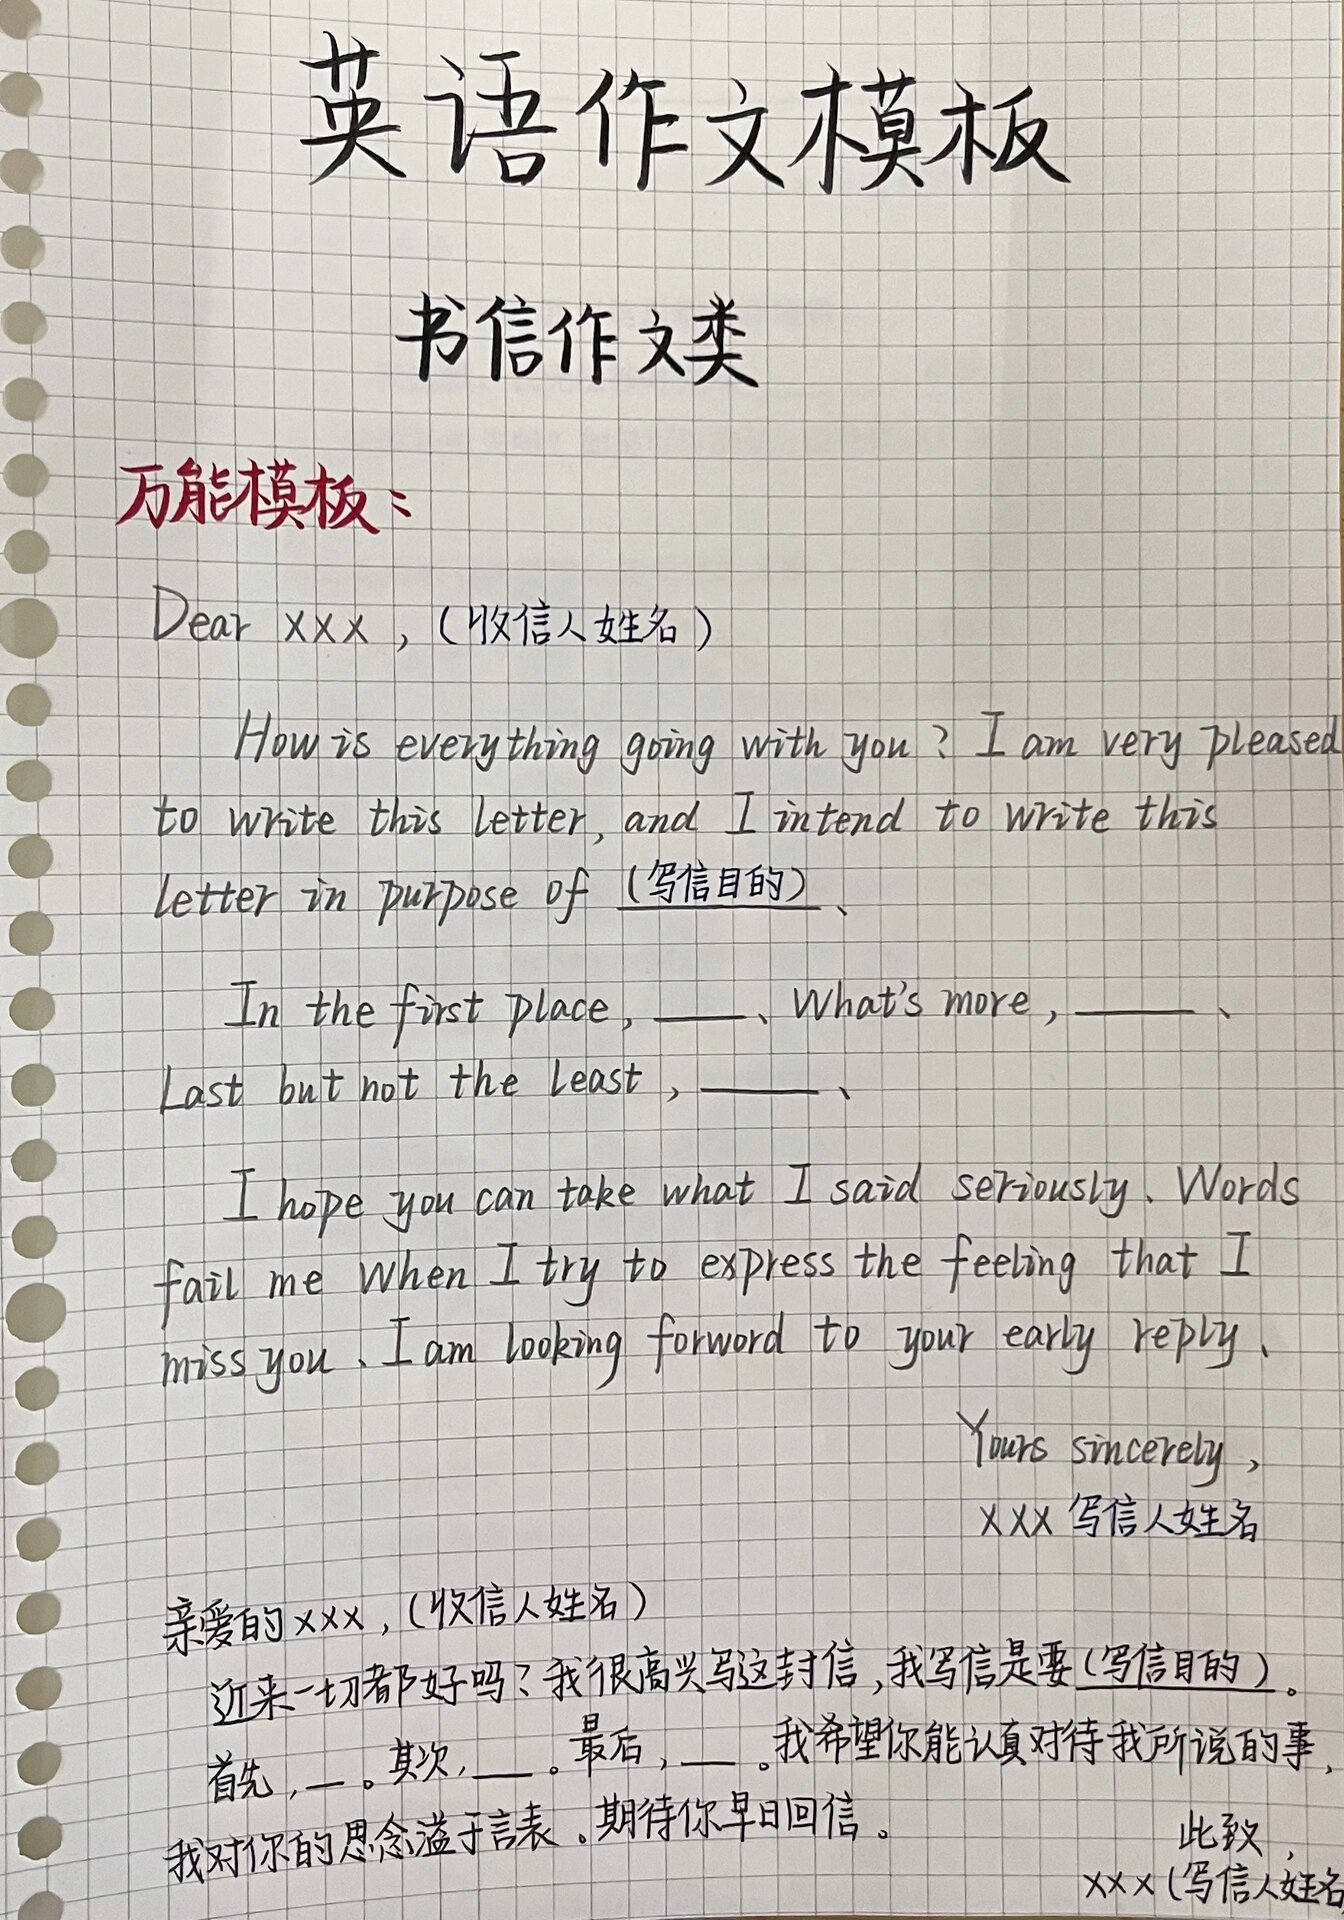 英语作文模板
书信作文类
万能模板：
Dear xxx,（收信人姓名）
How is everything going with you? I am very pleased
to write this letter, and I intend to write this
letter in purpose of （写信目的）、
In the first place, ____、What's more, ____、
Last but not the least, ____、
I hope you can take what I said seriously、Words
fail me when I try to express the feeling that I
miss you、I am looking forword to your early reply、
Yours sincerely,
xxx 写信人姓名
亲爱的xxx,（收信人姓名）
近来一切都好吗？我很高兴写这封信,我写信是要（写信目的）。
首先,__。其次,__。最后,__。我希望你能认真对待我所说的事,
我对你的思念溢于言表。期待你早日回信。
此致,
xxx（写信人姓名